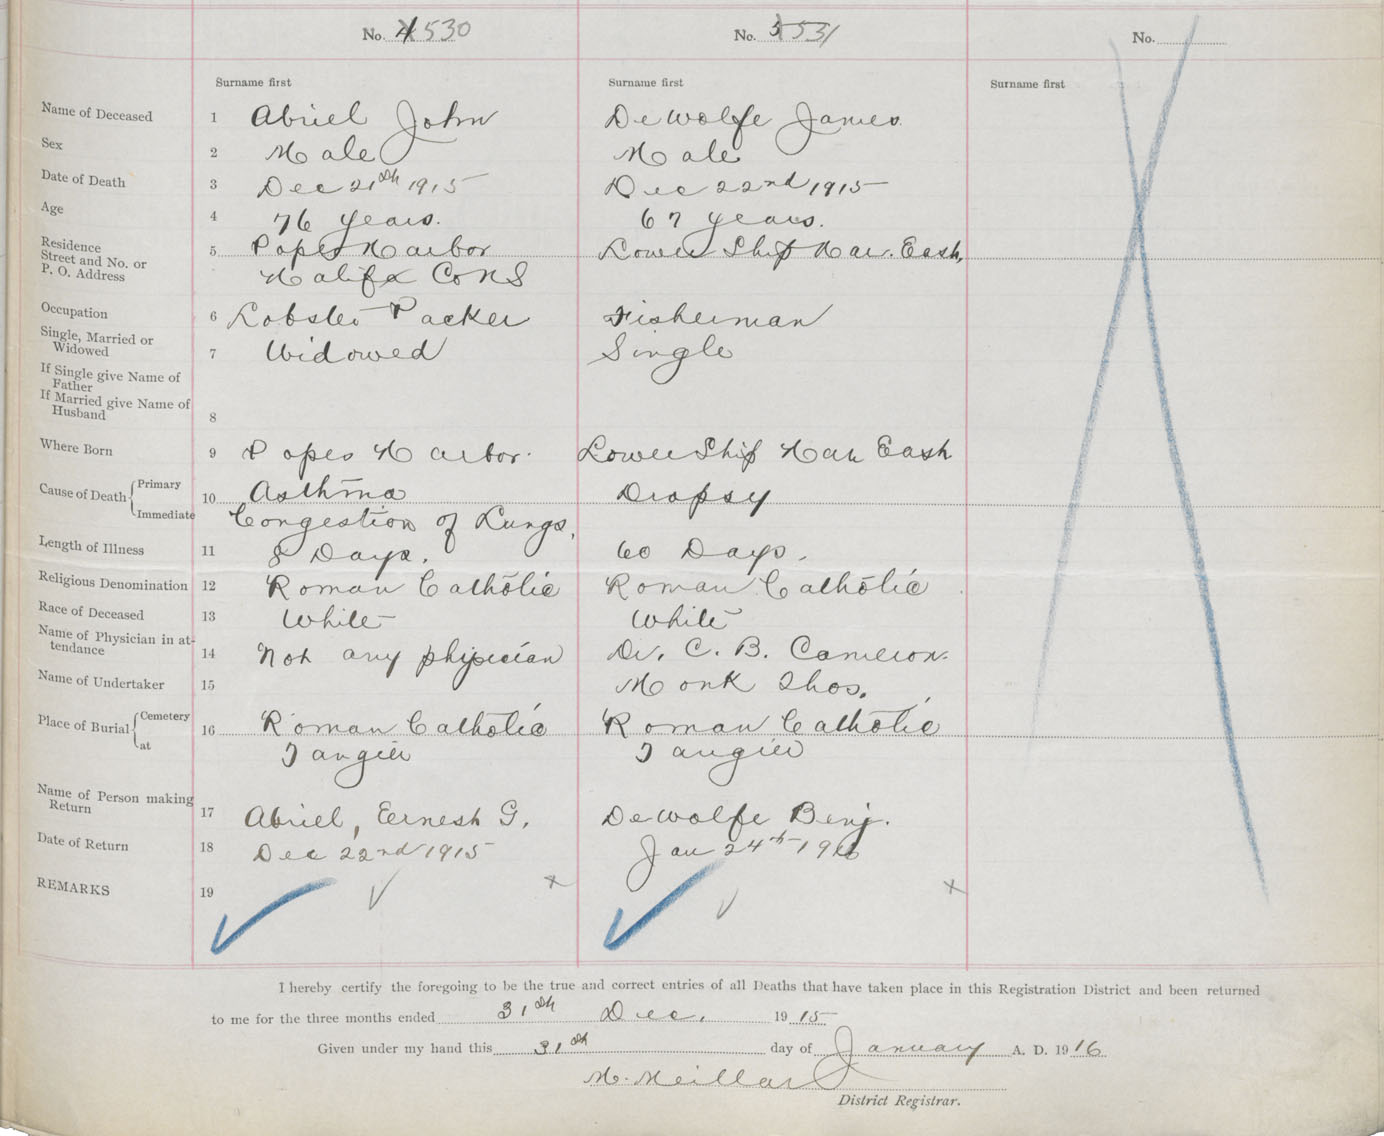 No. 4 530
No. 5 531
No.
Surname first
Surname first
Surname first
Name of Deceased 1 Abriel John DeWolfe James
Sex 2 Male Male
Date of Death 3 Dec 21th 1915 Dec 22nd 1915
Age 4 76 years. 67 years.
Residence
Street and No. or 5 Popes Harbor Lower Ship Har. East,
P. O. Address Halifax Co NS
Occupation 6 Lobster Packer Fisherman
Single, Married or
Widowed 7 Widowed Single
If Single give Name of
Father
If Married give Name of
Husband 8
Where Born 9 Popes Harbor. Lower Ship Har East
Cause of Death { Primary 10 Asthma Dropsy
Immediate Congestion of Lungs,
Length of Illness 11 8 Days. 60 Days.
Religious Denomination 12 Roman Catholic Roman Catholic
Race of Deceased 13 White White
Name of Physician in at-
tendance 14 Not any physician Dr. C. B. Cameron.
Name of Undertaker 15 Monk Thos.
Place of Burial { Cemetery 16 Roman Catholic Roman Catholic
at Tangier Tangier
Name of Person making
Return 17 Abriel, Eernest G. DeWolfe Benj.
Date of Return 18 Dec 22nd 1915 Jan 24th 1916
REMARKS 19
I hereby certify the foregoing to be the true and correct entries of all Deaths that have taken place in this Registration District and been returned
to me for the three months ended 31th Dec. 19 15
Given under my hand this 31th day of January A. D. 19 16
District Registrar.